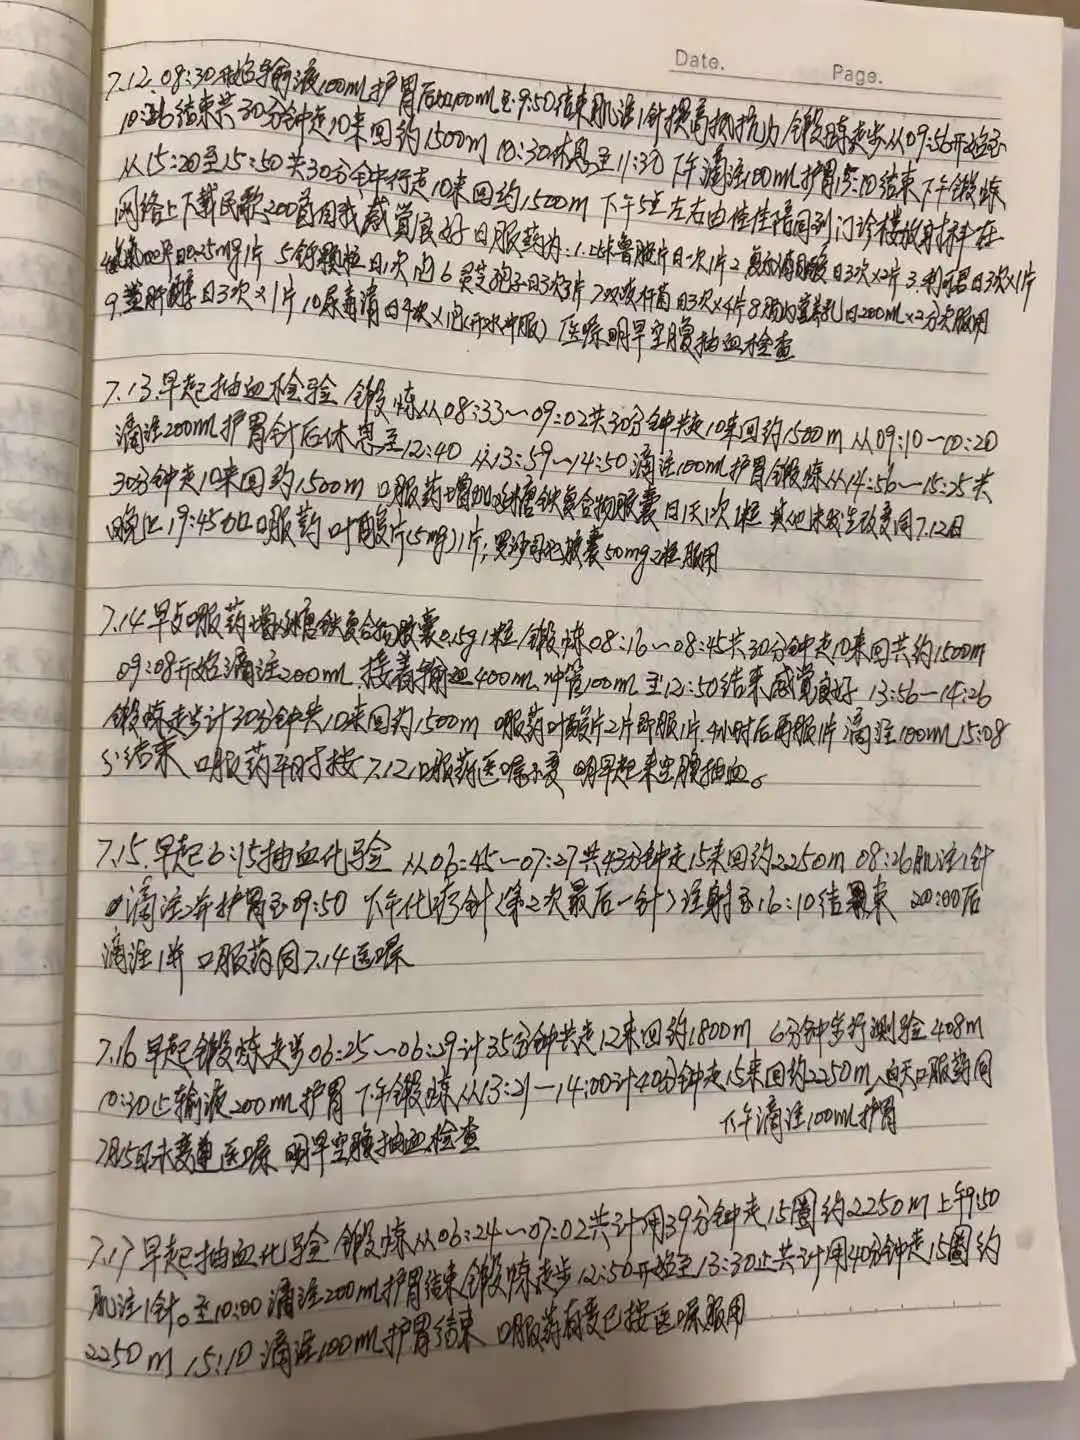 Date.
Page.
7.12. 08:30开始输液100ml护胃后100ml至9:50结束肌注1针提高抵抗力 锻炼走步从09:56开始至
10:26结束共30分钟走10来回约1500m 10:30休息至11:30 下午滴注100ml护胃15:10结束下午锻炼
从15:20至15:50共30分钟行走10来回约1500m 下午5点左右由佳佳陪同到门诊楼放射科在
网络上下载民歌200首用我感觉良好 日服药为:1. 日一次1片2. 日3次×2片 3.利可君日3次×1片
5钙颗粒日1次 6灵芝孢子日3次3片 7双歧杆菌日3次×4片8肠内营养乳日200ml×2分次服用
9. 醇日3次×1片 10尿毒清日4次×1包(开水冲服) 医嘱明早空腹抽血检查
7.13.早起抽血检验 锻炼从08:33~09:02共30分钟共走10来回约1500m 从09:10~10:20
滴注200ml护胃针后休息至12:40 从13:59~14:50滴注100ml护胃锻炼从14:56~15:25共
30分钟走10来回约1500m 口服药增加多糖铁复合物胶囊日1天1次1粒 其他未发生改变同7.12日
晚上19:45加口服药 叶酸片(5mg)1片; 罗沙司他胶囊50mg2粒服用
7.14早点口服药增多糖铁复合物胶囊0.15g1粒 锻炼08:16~08:45共30分钟走10来回共约1500m
09:08开始滴注200ml.接着输血400ml.冲管100ml至12:50结束感觉良好 13:56—14:26
锻炼走步计30分钟共10来回约1500m 口服药叶酸片2片即服1片.4小时后再服1片 滴注100ml 15:08
结束 口服药 按7.12口服药医嘱不变 明早起来空腹抽血。
7.15.早起6:15抽血化验 从06:45~07:27共43分钟走15来回约2250m 08:26肌注1针
滴注2并护胃至09:50 下午化疗针(第2次最后一针)注射至16:10结束 20:00后
滴注1并 口服药同7.14医嘱
7.16早起锻炼走步06:25~06:59计35分钟共走12来回约1800m 6分钟步行测验408m
10:30止输液200ml护胃 下午锻炼从13:21—14:00计40分钟走15来回约2250m 白天口服药同
下午滴注100ml护胃
7月15日未变遵医嘱 明早空腹抽血检查
7.17早起抽血化验 锻炼从06:24~07:02共计用39分钟走15圈约2250m 上午9:50
肌注1针。至10:00滴注200ml护胃结束 锻炼走步12:50开始至13:30止共计用40分钟走15圈约
2250m 15:10滴注100ml护胃结束 口服药有变已按医嘱服用